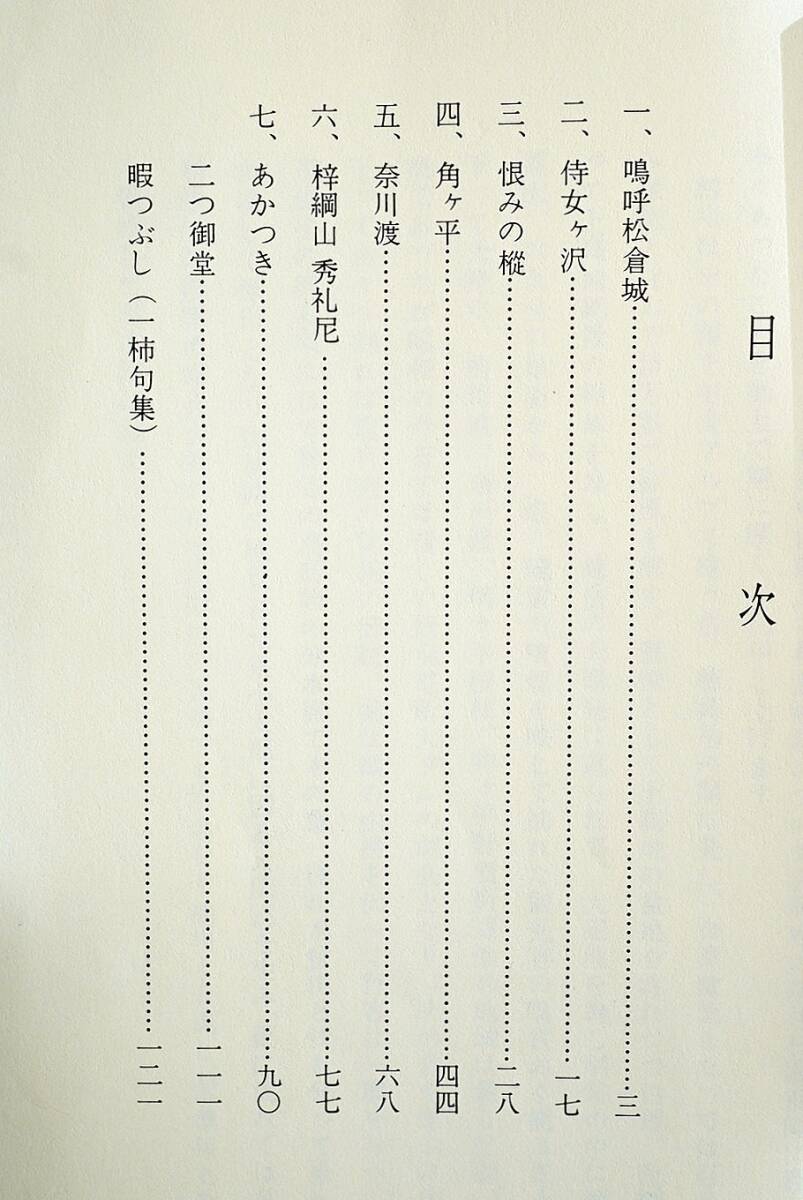 目次
一、嗚呼松倉城……三
二、侍女ヶ沢……一七
三、恨みの樅……二八
四、角ヶ平……四四
五、奈川渡……六八
六、梓綱山 秀礼尼……七七
七、あかつき……九〇
二つ御堂……一一一
暇つぶし（一柿句集）……一二一